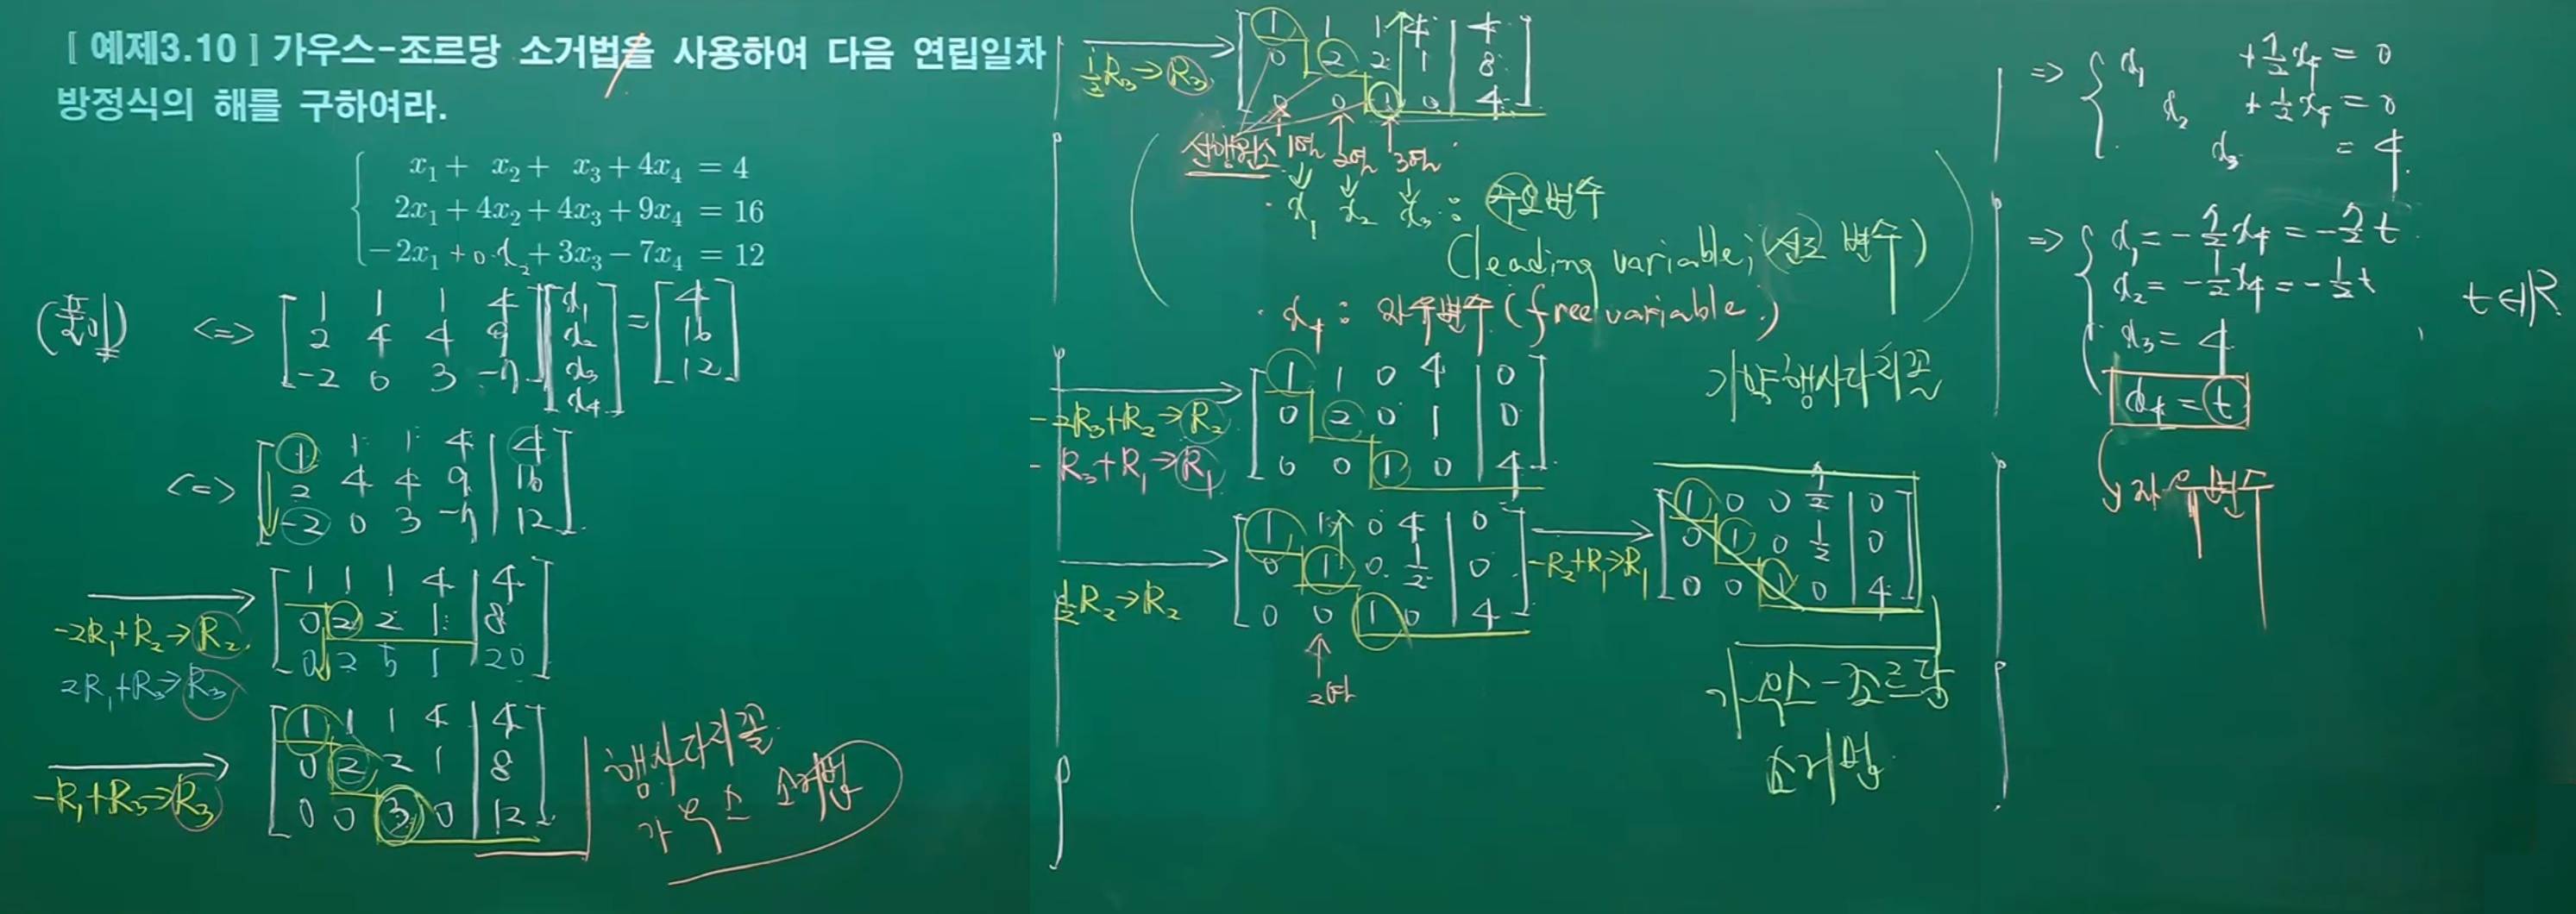 [ 예제3.10 ] 가우스-조르당 소거법을 사용하여 다음 연립일차
방정식의 해를 구하여라.
x₁ + x₂ + x₃ + 4x₄ = 4
2x₁ + 4x₂ + 4x₃ + 9x₄ = 16
-2x₁ + 0·x₂ + 3x₃ - 7x₄ = 12
(풀이) <=> [1 1 1 4; 2 4 4 9; -2 0 3 -7] [x₁; x₂; x₃; x₄] = [4; 16; 12]
<=> [1 1 1 4 | 4; 2 4 4 9 | 16; -2 0 3 -7 | 12]
-2R₁+R₂→R₂
2R₁+R₃→R₃
[1 1 1 4 | 4; 0 2 2 1 | 8; 0 2 5 1 | 20]
-R₁+R₃→R₃
[1 1 1 4 | 4; 0 2 2 1 | 8; 0 0 3 0 | 12]
행사다리꼴
가우스 소거법
½R₃→R₃
[1 1 1 4 | 4; 0 2 2 1 | 8; 0 0 1 0 | 4]
선행원소 1열 2열 3열
x₁ x₂ x₃ : 주요변수
(leading variable; 선도 변수)
· x₄ : 자유변수 (free variable)
-2R₃+R₂→R₂
-R₃+R₁→R₁
[1 1 0 4 | 0; 0 2 0 1 | 0; 0 0 1 0 | 4]
기약행사다리꼴
½R₂→R₂
[1 1 0 4 | 0; 0 1 0 ½ | 0; 0 0 1 0 | 4]
2열
-R₂+R₁→R₁
[1 0 0 7/2 | 0; 0 1 0 ½ | 0; 0 0 1 0 | 4]
가우스-조르당
소거법
=> x₁ + 7/2 x₄ = 0
x₂ + ½x₄ = 0
x₃ = 4
=> x₁ = -7/2 x₄ = -7/2 t
x₂ = -½x₄ = -½t , t∈ℝ
x₃ = 4
x₄ = t
자유변수